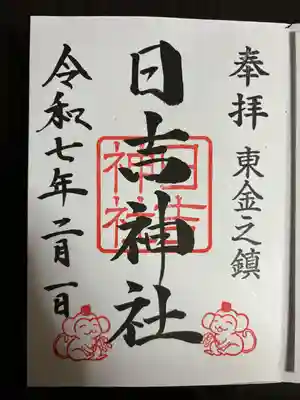 奉拝 東金之鎮
日吉神社
日吉神社
令和七年二月一日